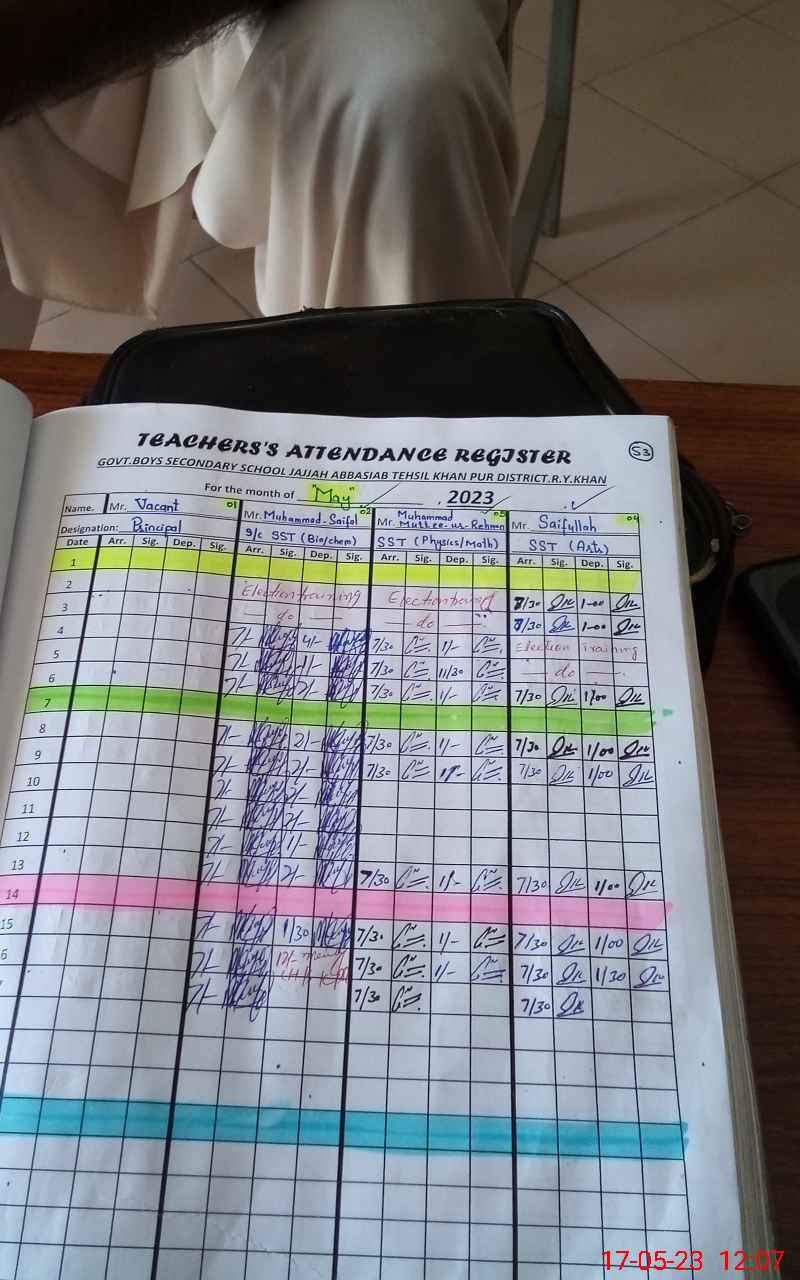 TEACHERS'S ATTENDANCE REGISTER 53
GOVT.BOYS SECONDARY SCHOOL JAJJAH ABBASIAB TEHSIL KHAN PUR DISTRICT.R.Y.KHAN
For the month of "May" , 2023
Name. Mr. Vacant 01 Mr. Muhammad Saifal 02 Mr. Muhammad Mutee-ur-Rehman 03 Mr. Saifullah 04
Designation: Principal S/c SST (Bio/chem) SST (Physics/Math) SST (Arts)
Date Arr. Sig. Dep. Sig. Arr. Sig. Dep. Sig. Arr. Sig. Dep. Sig. Arr. Sig. Dep. Sig.
1
2 Election training Election 7/30 1-00
3 do do 7/30 1-00
4 7/- 4/- 7/30 1/- Election Training
5 7/- 7/30 11/30 do
6 7/- 2/- 7/30 1/- 7/30 1/00
7
8 7/- 2/- 7/30 1/- 7/30 1/00
9 7/- 2/- 7/30 1/- 7/30 1/00
10 7/- 2/-
11 7/- 2/-
12 7/- 1/-
13 7/- 2/- 7/30 1/- 7/30 1/00
14
15 7/- 1/30 7/30 1/- 7/30 1/00
6 7/- 12/- 7/30 1/- 7/30 1/30
7/- 7/30 7/30
17-05-23 12:07